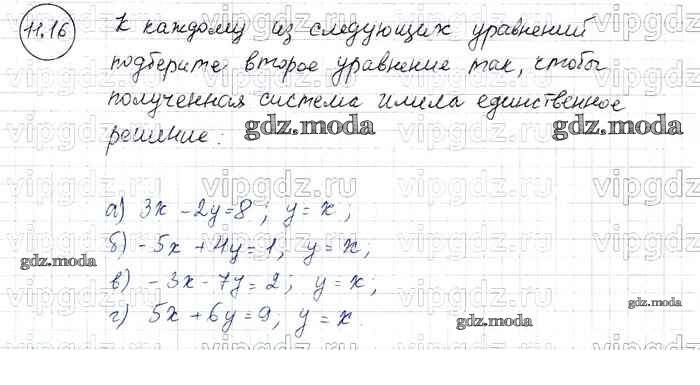 11.16
К каждому из следующих уравнений
подберите второе уравнение так, чтобы
полученная система имела единственное
решение:
gdz.moda gdz.moda
а) 3x - 2y = 8; y = x;
б) - 5x + 4y = 1, y = x;
gdz.moda
в) - 3x - 7y = 2; y = x;
gdz.moda
г) 5x + 6y = 9, y = x.
gdz.moda
vipgdz.ru vipgdz.ru vipgdz.ru